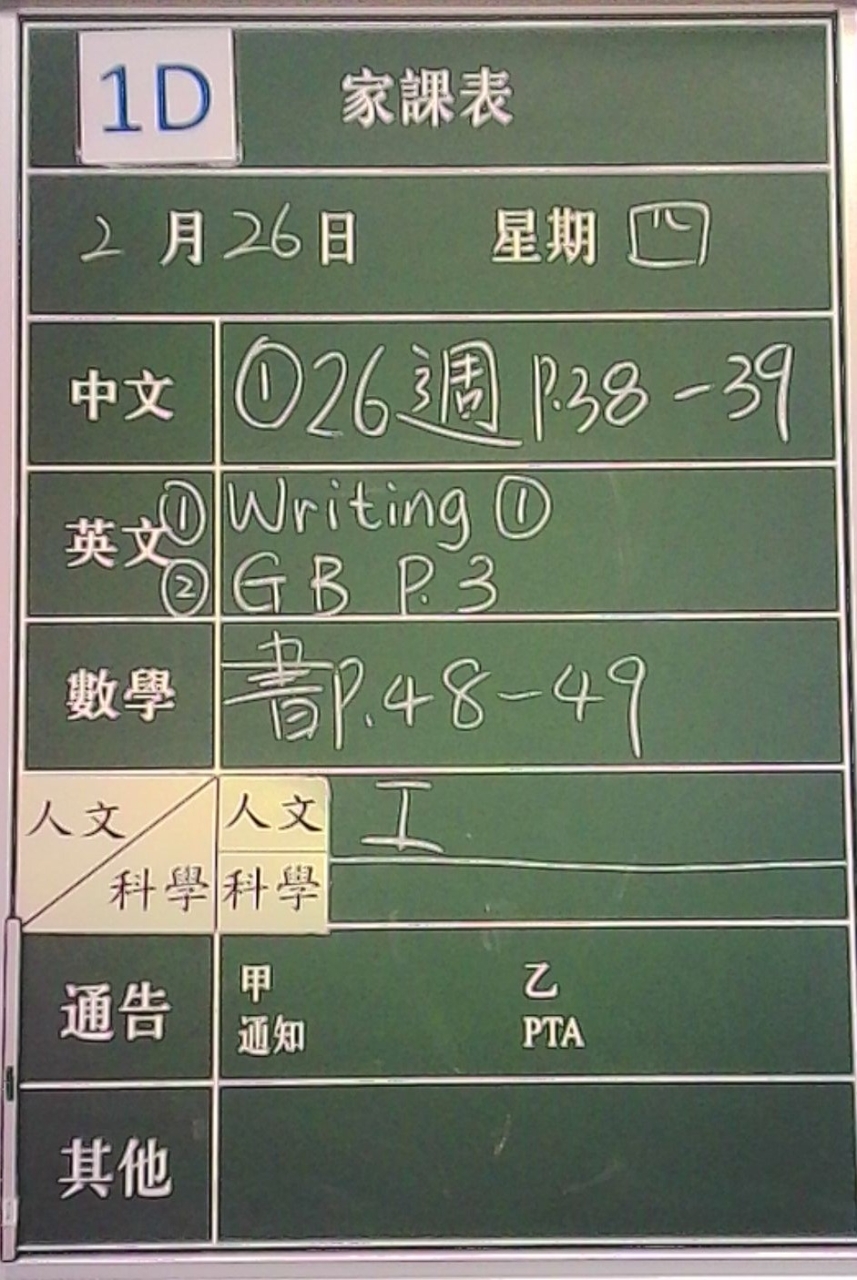 1D 家課表
2月26日 星期四
中文 ①26週 P.38-39
英文 ① Writing ①
② GB P.3
數學 書P.48-49
人文 科學 人文 工
科學
通告 甲 乙
通知 PTA
其他